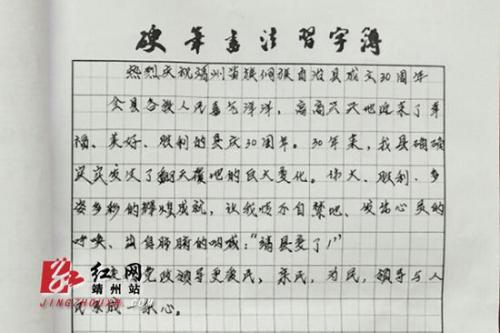 硬笔书法习字簿
热烈庆祝靖州苗族侗族自治县成立30周年
全县各族人民喜气洋洋，高高兴兴地迎来了幸
福、美好、胜利的县庆30周年。30年来，我县确确
实实发生了翻天覆地的巨大变化。伟大、胜利、多
姿多彩的辉煌成就，让我情不自禁地、发出心灵的
呼唤、肺腑的呐喊："靖县变了！"
党政领导更爱民，亲民，为民，领导与人
民系成一条心。
红网
靖州站
JINGZHOU.RN.COM